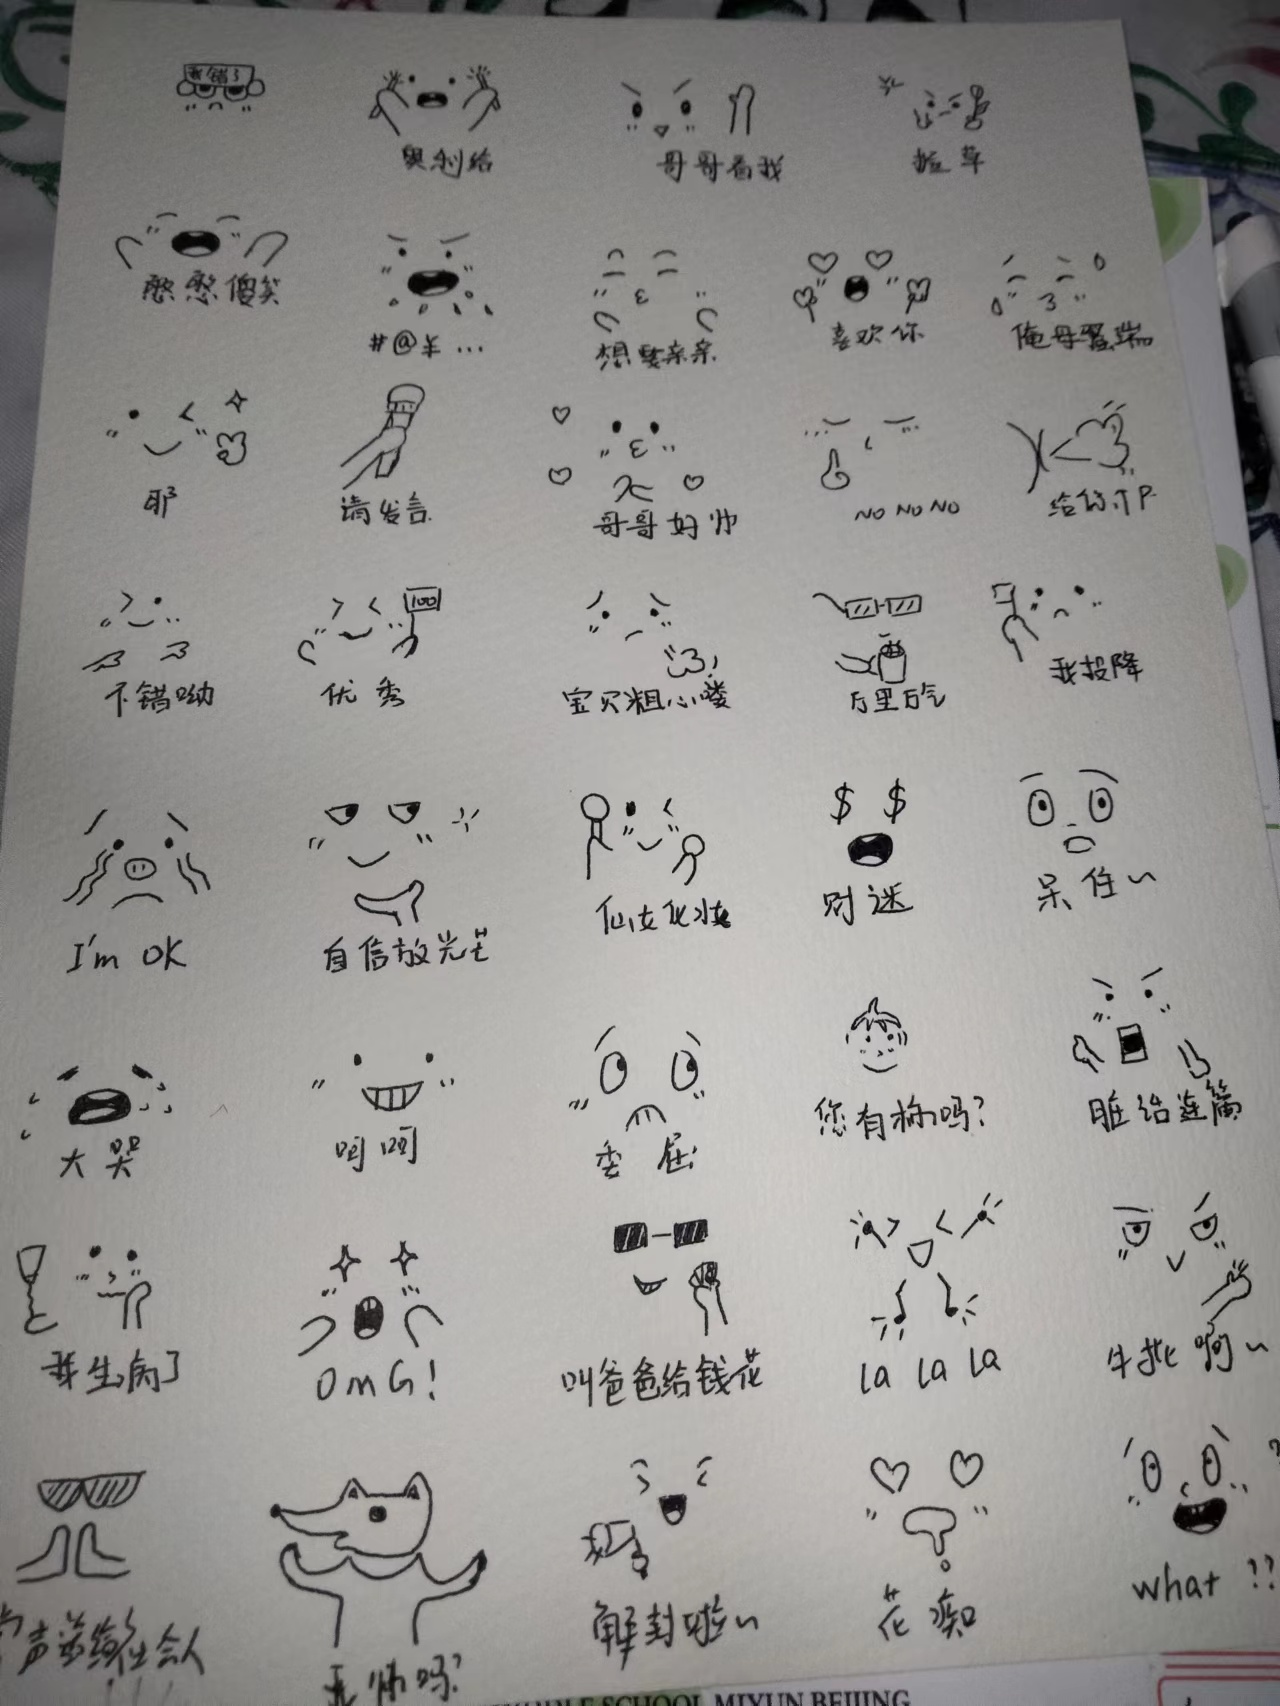 我错了
奥利给
哥哥看我
握草
憨憨傻笑
#@¥...
想要亲亲
喜欢你
俺母蛋湍
耶
请发言
哥哥好帅
NO NO NO
给你个P
不错呦
优秀
100
宝贝粗心喽
万里万气
我投降
I'm OK
自信放光芒
仙女化妆
$ $
财迷
呆住~
大哭
呵呵
委屈
您有称吗?
脏话连篇
我生病了
OMG!
叫爸爸给钱花
la la la
牛批啊~
声爷给社会人
无怖吗?
解封啦~
花痴
what ??
SCHOOL MIYUN BEIJING